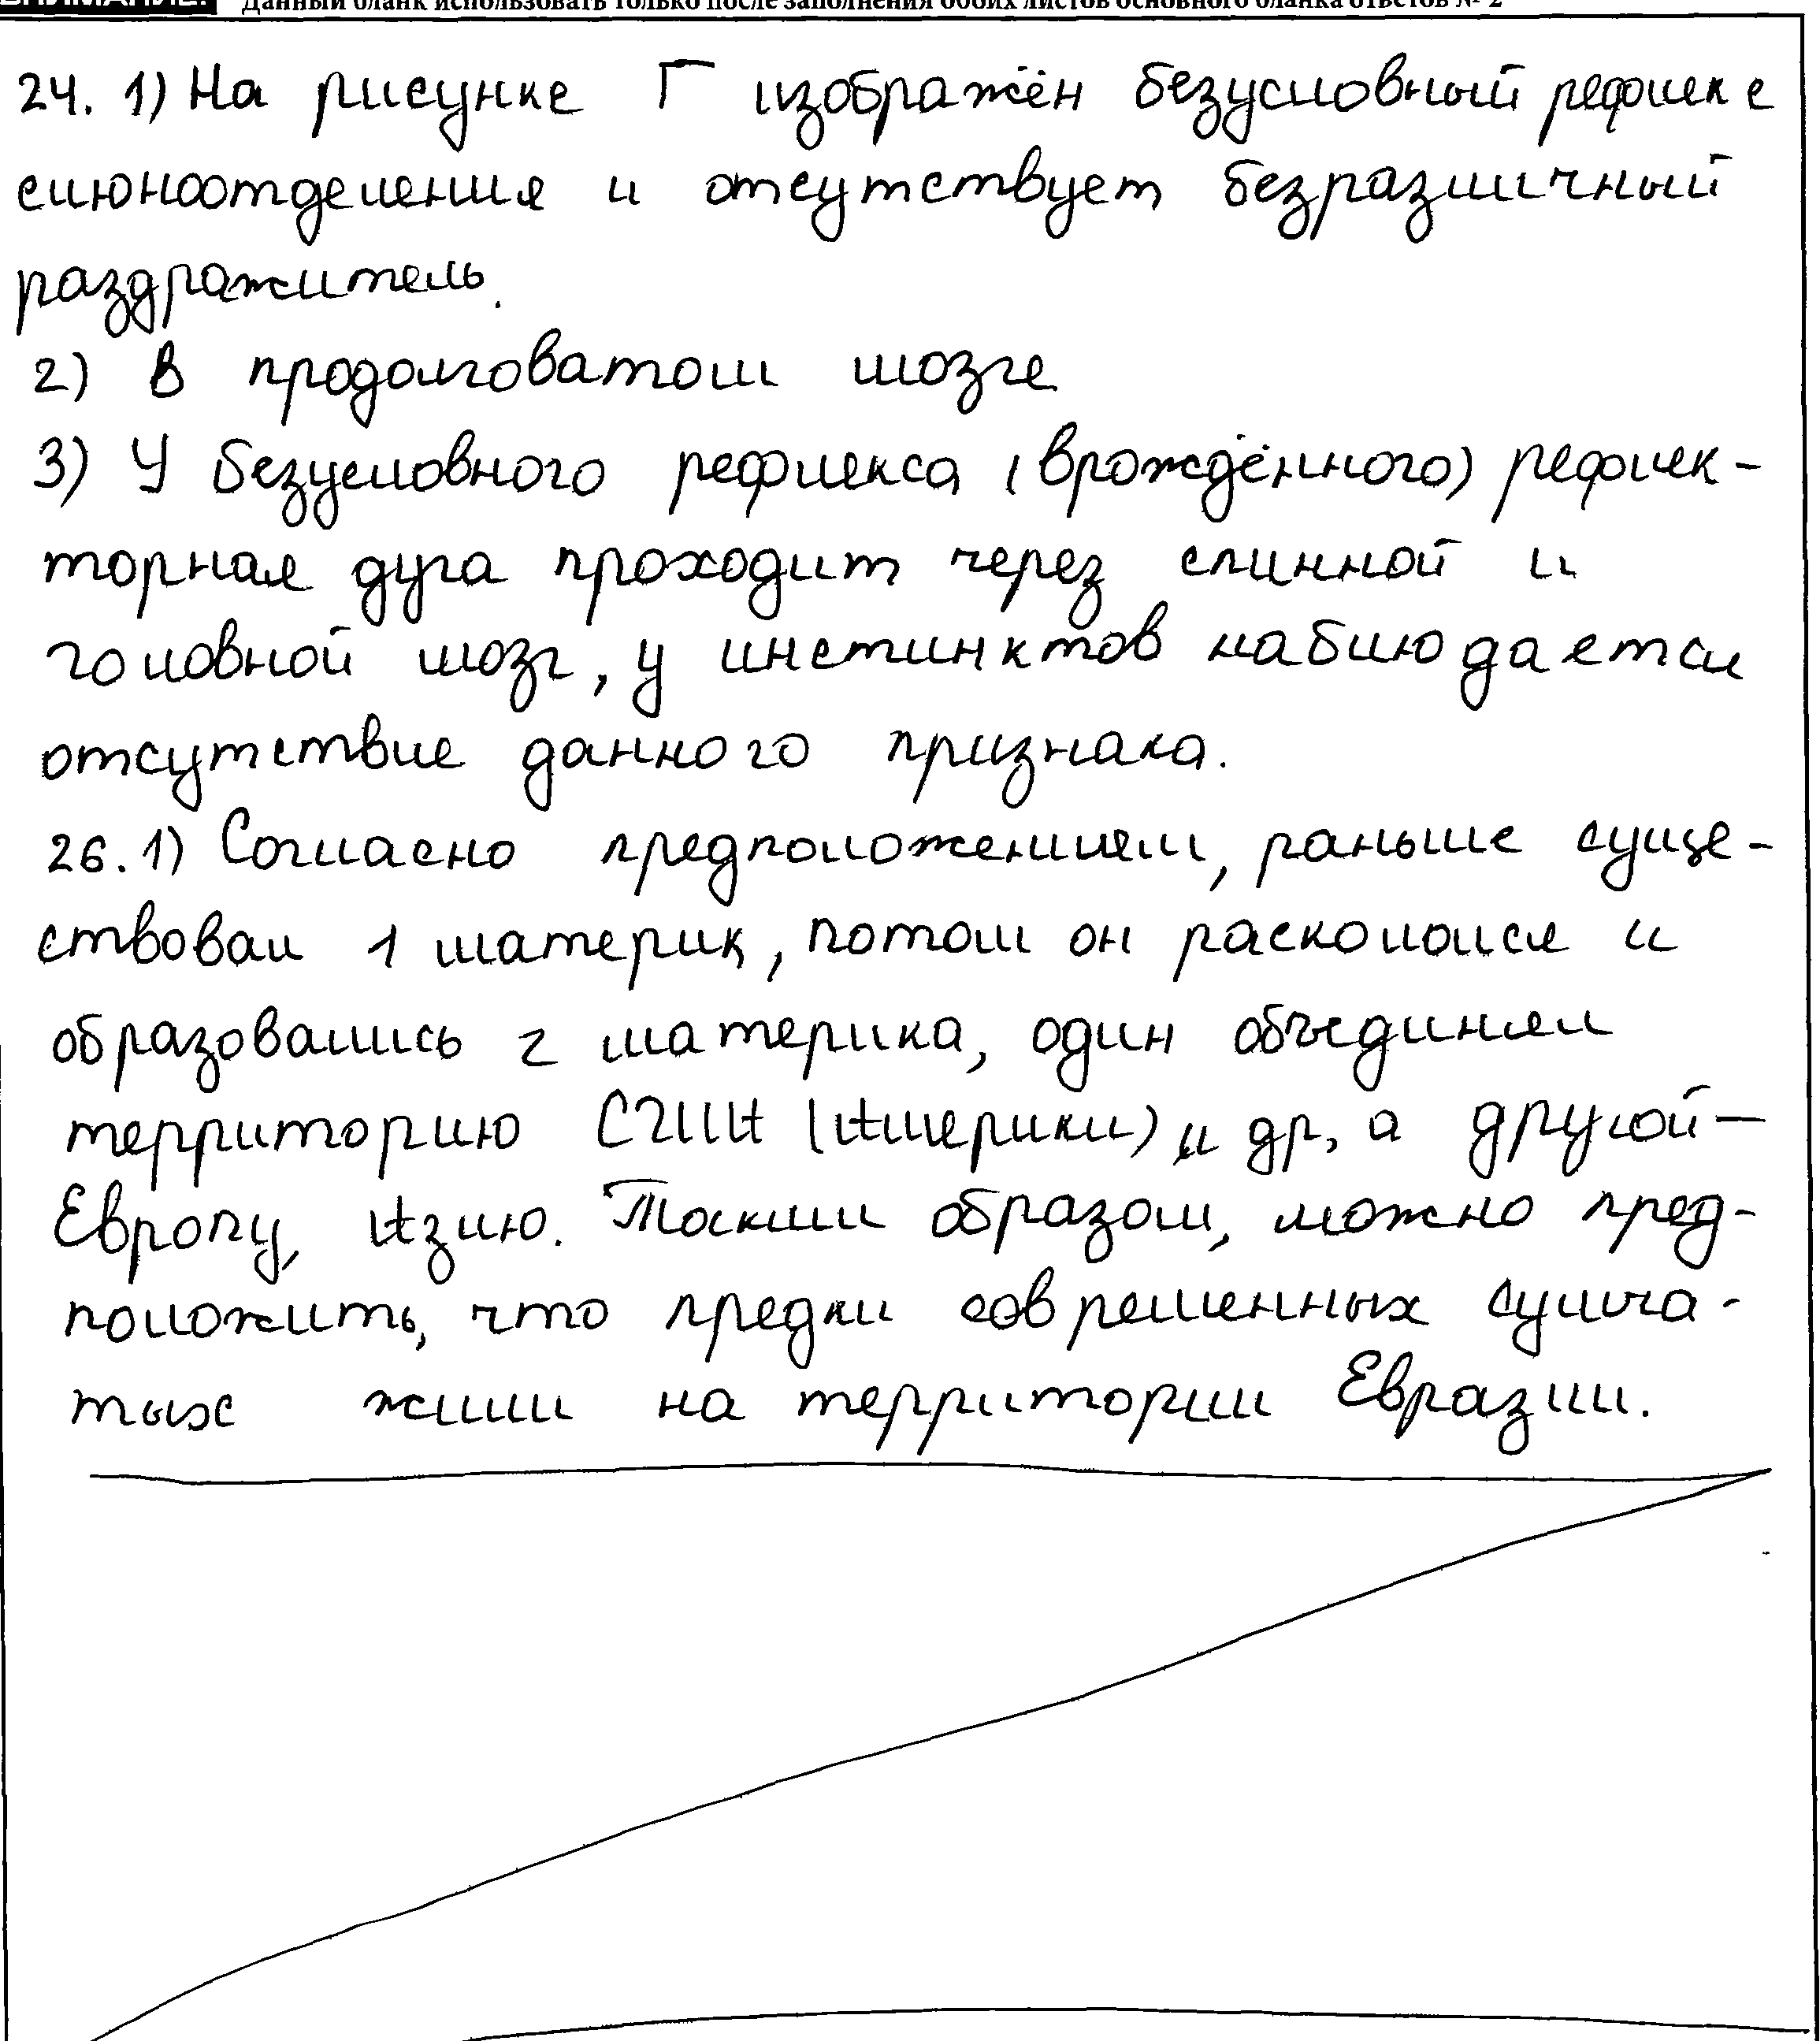 ВНИМАНИЕ! Данный бланк использовать только после заполнения обоих листов основного бланка ответов № 2
24. 1) На рисунке Г изображён безусловный рефлекс
слюноотделения и отсутствует безразличный
раздражитель.
2) В продолговатом мозге
3) У безусловного рефлекса (врождённого) рефлек-
торная дуга проходит через спинной и
головной мозг, у инстинктов наблюдается
отсутствие данного признака.
26. 1) Согласно предположениям, раньше суще-
ствовал 1 материк, потом он раскололся и
образовались 2 материка, один объединял
территорию США (Америки) и др, а другой —
Европу, Азию. Таким образом, можно пред-
положить, что предки современных сумча-
тых жили на территории Евразии.